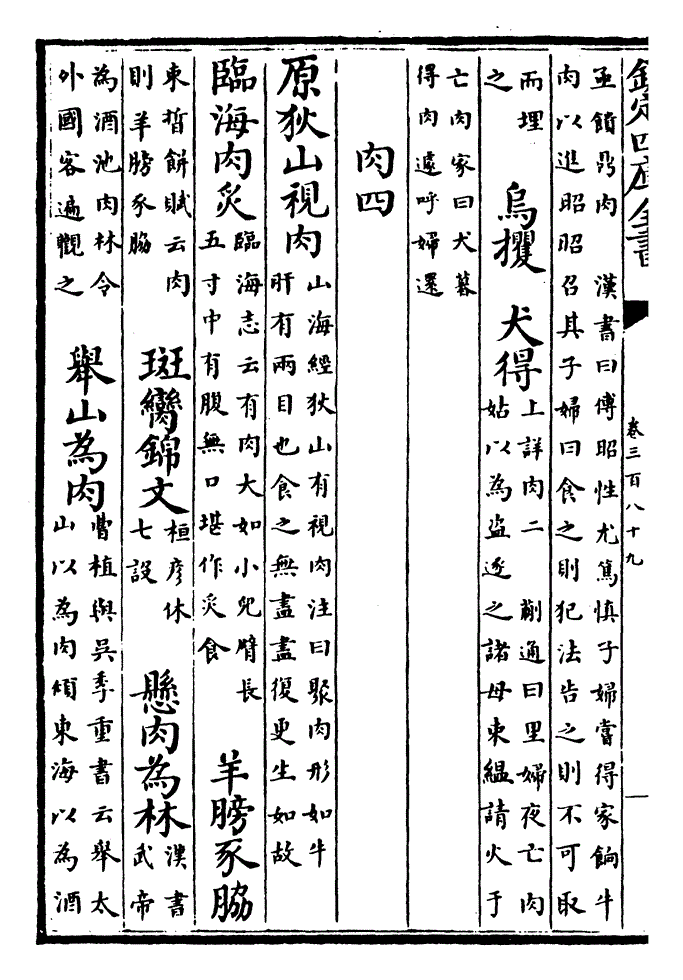 欽定四庫全書 卷三百八十九 一
亟饋鼎肉 漢書曰傅昭性尤篤慎子婦嘗得家餉牛
肉以進昭昭召其子婦曰食之則犯法告之則不可取
而埋
之
烏攫 犬得
上詳肉二 蒯通曰里婦夜亡肉
姑以為盜逐之諸母束緼請火于
亡肉家曰犬暮
得肉遠呼婦還
肉四
原狄山視肉
山海經狄山有視肉注曰聚肉形如牛
肝有兩目也食之無盡盡復更生如故
臨海肉炙
臨海志云有肉大如小兒臂長
五寸中有腹無口堪作炙食
羊膀豕脇
束晳餅賦云肉
則羊膀豕脇
斑臠錦文
桓彦休
七設
懸肉為林
漢書
武帝
為酒池肉林令
外國客遍觀之
舉山為肉
曹植與吳季重書云舉太
山以為肉傾東海以為酒